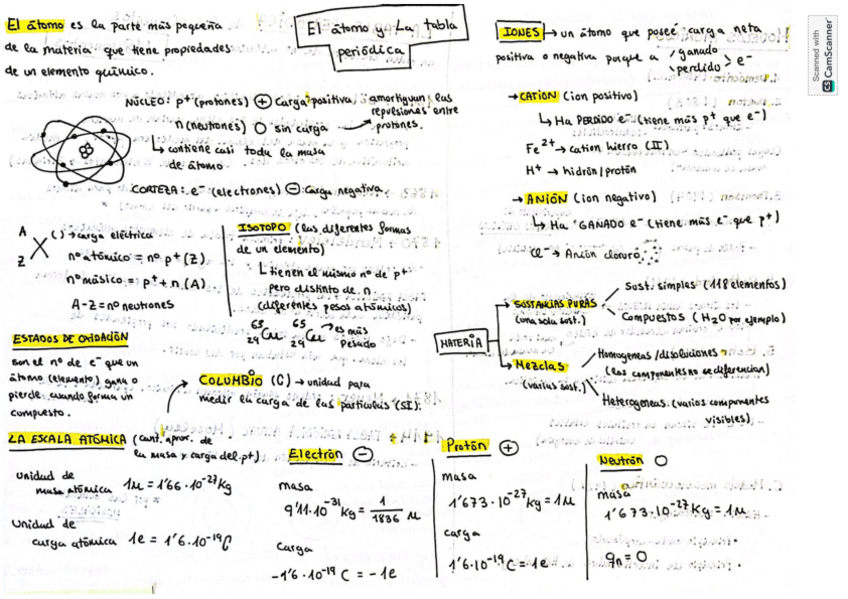 El átomo y La tabla
periódica
El átomo es la parte más pequeña
de la materia que tiene propiedades
de un elemento químico.
NÚCLEO: p⁺(protones) ⊕ Carga positiva
n (neutrones) ○ sin carga
amortiguan las
repulsiones entre
protones.
↳ contiene casi toda la masa
de átomo
CORTEZA: e⁻ (electrones) ⊖ Carga negativa
A
Z X ( ) → carga eléctrica
nº atómico = nº p⁺ (Z)
nº másico = p⁺ + n (A)
A-Z = nº neutrones
ISOTOPO (las diferentes formas
de un elemento)
↳ tienen el mismo nº de p⁺
pero distinto de n.
(diferentes pesos atómicos)
⁶³₂₉Cu ⁶⁵₂₉Cu → es más
pesado
ESTADOS DE OXIDACIÓN
son el nº de e⁻ que un
átomo (elemento) gana o
pierde cuando forma un
compuesto.
COLUMBIO (C) → unidad para
medir la carga de las partículas (SI).
LA ESCALA ATÓMICA (cant. aprox. de
la masa y carga del p⁺)
unidad de
masa atómica 1u = 1'66·10⁻²⁷kg
Unidad de
carga atómica 1e = 1'6·10⁻¹⁹C
Electrón ⊖
masa
9'11·10⁻³¹kg = 1/1836 u
Carga
-1'6·10⁻¹⁹ C = -1e
IONES → un átomo que posee carga neta
positiva o negativa porque a ganado
perdido > e⁻
→ CATIÓN (ion positivo)
↳ Ha PERDIDO e⁻ (tiene más p⁺ que e⁻)
Fe²⁺ → catión hierro (II)
H⁺ → hidrón/protón
→ ANIÓN (ion negativo)
↳ Ha GANADO e⁻ (tiene más e⁻ que p⁺)
Cl⁻ → Anión cloruro
MATERIA
SUSTANCIAS PURAS
(una sola sust.)
Sust. simples (118 elementos)
Compuestos (H₂O por ejemplo)
Mezclas
(varias sust.)
Homogéneas/disoluciones
(los componentes no se diferencian)
Heterogéneas (varios componentes
visibles)
Protón ⊕
masa
1'673·10⁻²⁷kg = 1u
carga
1'6·10⁻¹⁹C = 1e
Neutrón ○
masa
1'673·10⁻²⁷kg = 1u
qn = 0
Scanned with
CS CamScanner